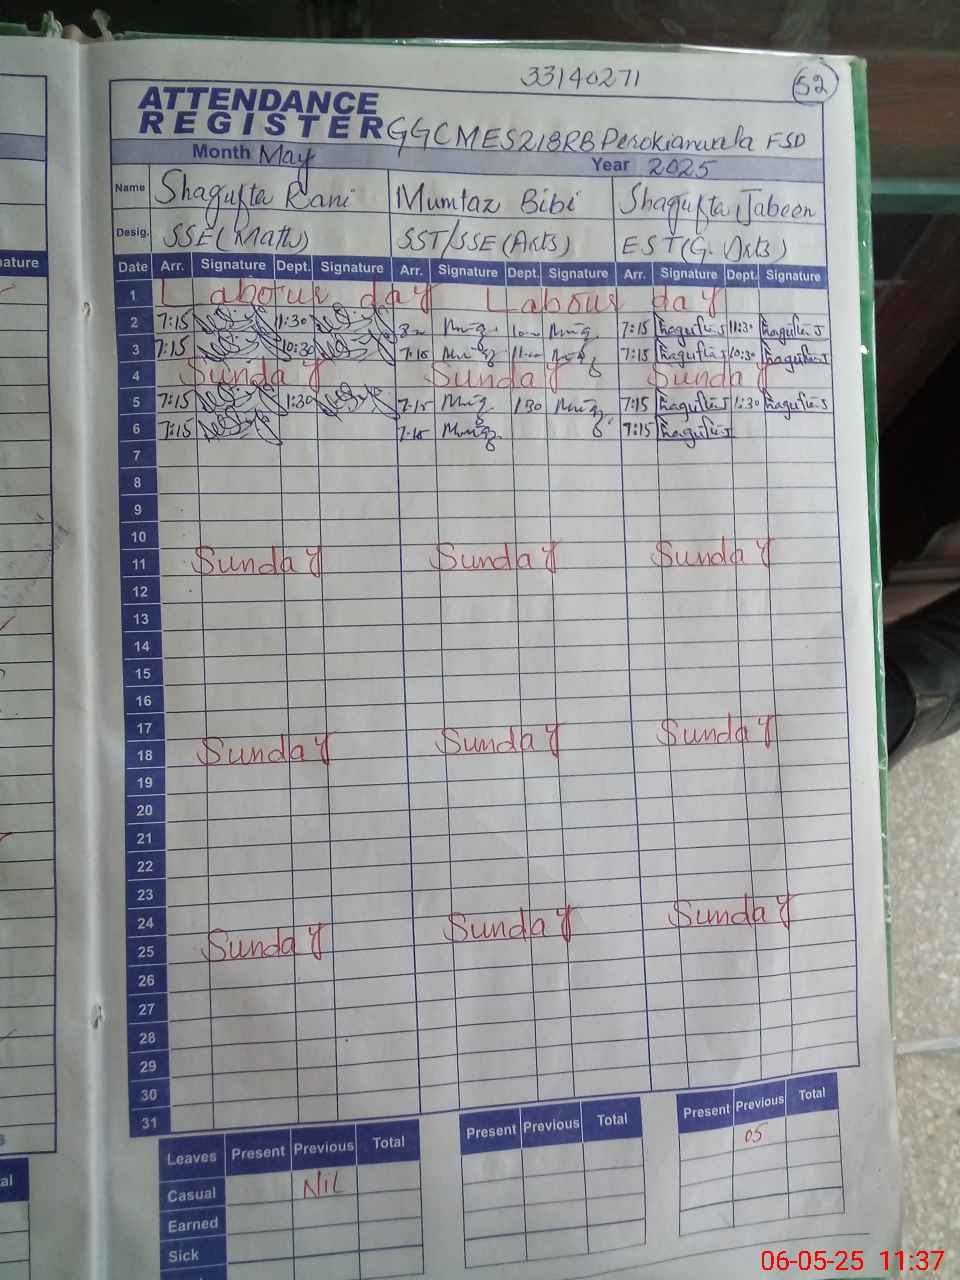 33140271
52
ATTENDANCE
REGISTER GGCMES218RB Perokianwala FSD
Month May Year 2025
Name Shagufta Rani Mumtaz Bibi Shagufta Jabeen
Desig. SSE(Math) SST/SSE(Arts) EST(G. Arts)
ature Date Arr. Signature Dept. Signature Arr. Signature Dept. Signature Arr. Signature Dept. Signature
1 Labour day Labour day
2 7:15 11:30 7:15 11:30
3 7:15 10:30 7:15 11:00 7:15 10:30
4 Sunday Sunday Sunday
5 7:15 1:30 7:15 1:30 7:15 1:30
6 7:15 7:15 7:15
7
8
9
10
11 Sunday Sunday Sunday
12
13
14
15
16
17
18 Sunday Sunday Sunday
19
20
21
22
23
24
25 Sunday Sunday Sunday
26
27
28
29
30
31
Leaves Present Previous Total Present Previous Total Present Previous Total
Casual Nil 05
Earned
Sick
al
06-05-25 11:37